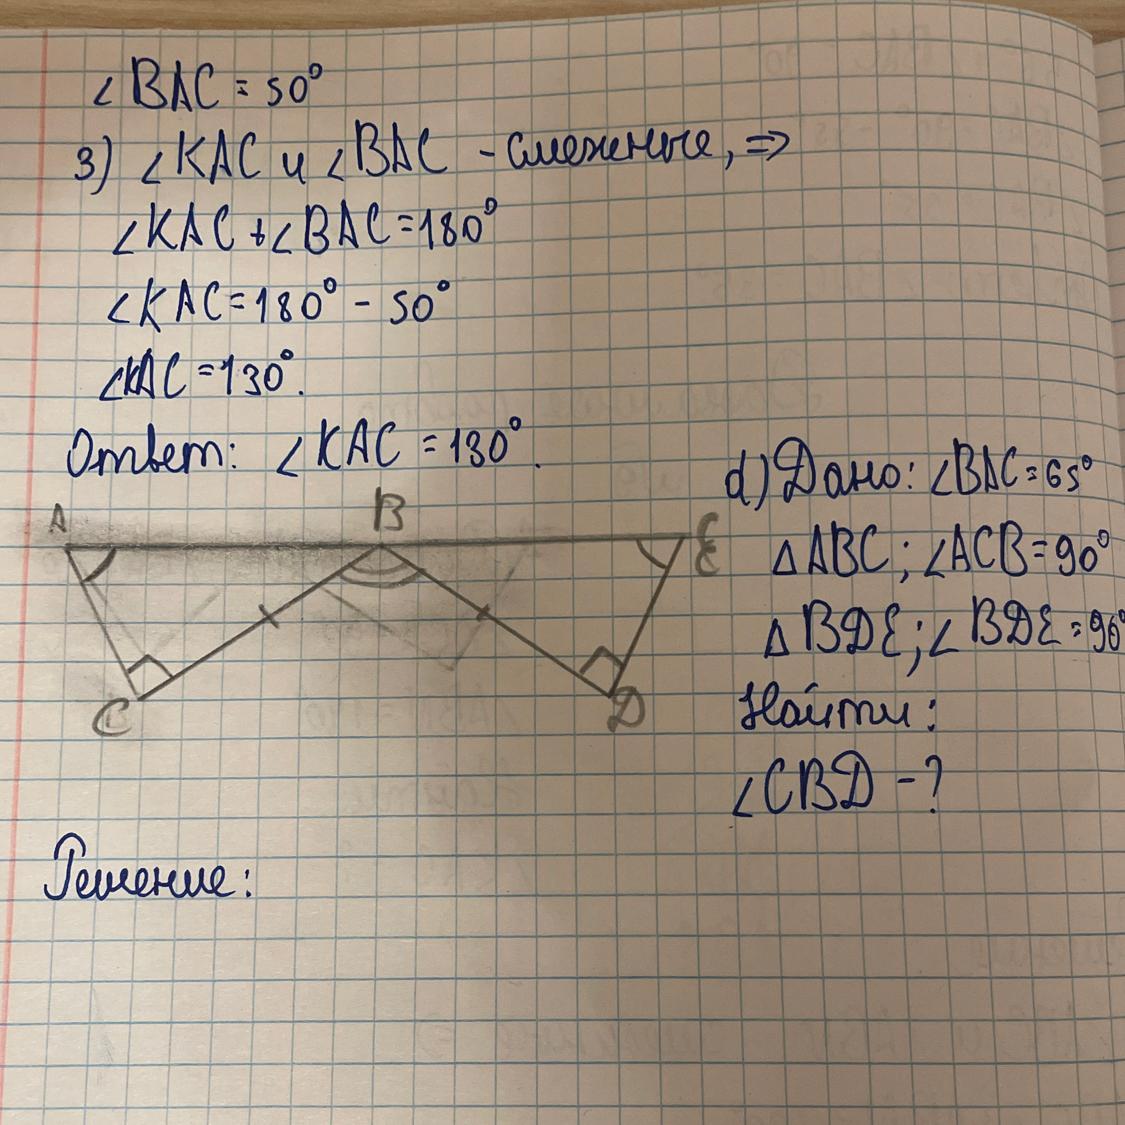 ∠BAC = 50°
3) ∠KAC и ∠BAC - смежные, ⇒
∠KAC + ∠BAC = 180°
∠KAC = 180° - 50°
∠KAC = 130°.
Ответ: ∠KAC = 130°.
A
B
E
C
D
d) Дано: ∠BAC = 65°
△ABC; ∠ACB = 90°
△BDE; ∠BDE = 90°
Найти:
∠CBD - ?
Решение: